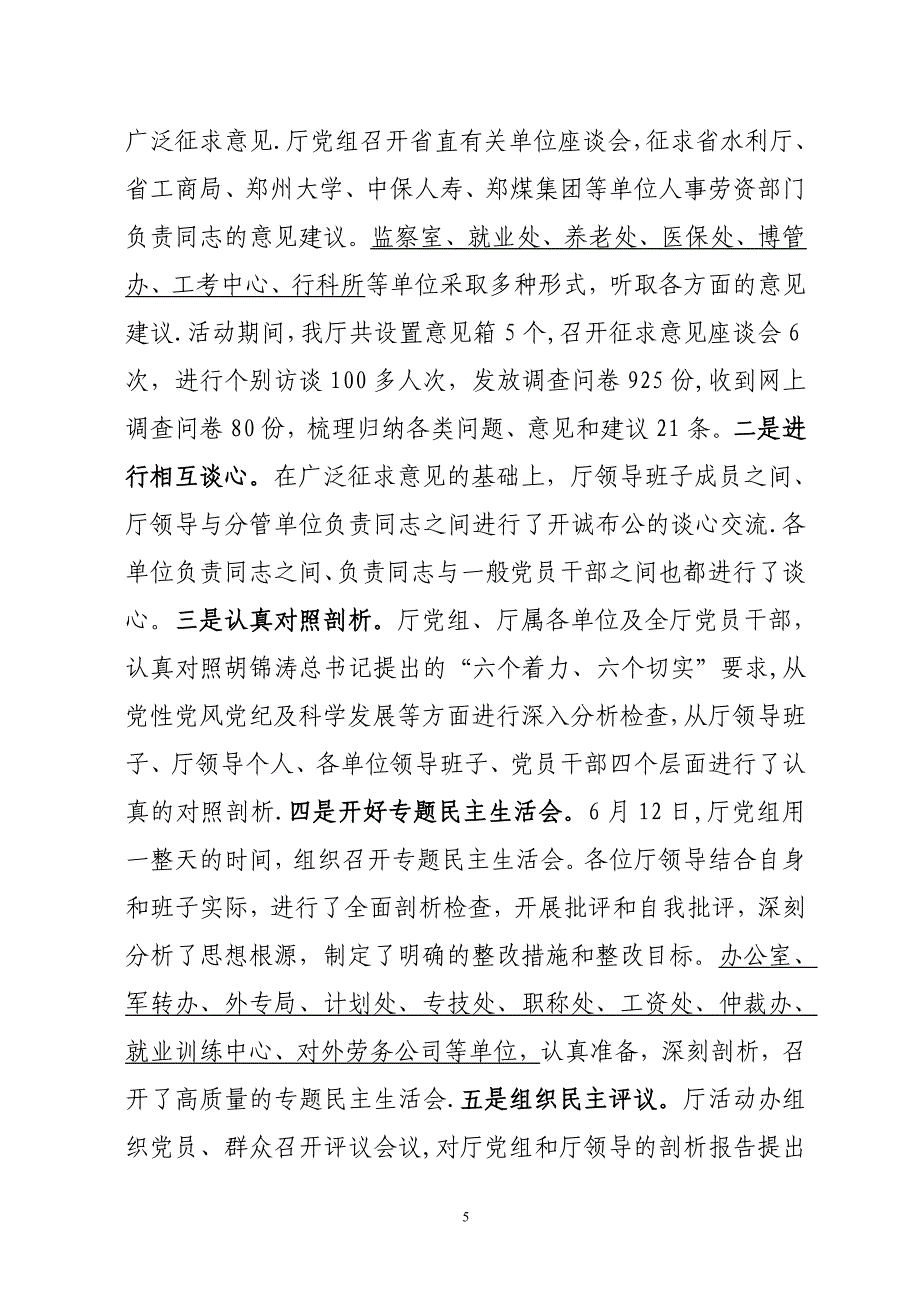 广泛征求意见.厅党组召开省直有关单位座谈会,征求省水利厅、
省工商局、郑州大学、中保人寿、郑煤集团等单位人事劳资部门
负责同志的意见建议。监察室、就业处、养老处、医保处、博管
办、工考中心、行科所等单位采取多种形式，听取各方面的意见
建议.活动期间,我厅共设置意见箱5个,召开征求意见座谈会6
次，进行个别访谈100多人次，发放调查问卷925份,收到网上
调查问卷80份，梳理归纳各类问题、意见和建议21条。二是进
行相互谈心。在广泛征求意见的基础上，厅领导班子成员之间、
厅领导与分管单位负责同志之间进行了开诚布公的谈心交流.各
单位负责同志之间、负责同志与一般党员干部之间也都进行了谈
心。三是认真对照剖析。厅党组、厅属各单位及全厅党员干部，
认真对照胡锦涛总书记提出的“六个着力、六个切实”要求,从
党性党风党纪及科学发展等方面进行深入分析检查,从厅领导班
子、厅领导个人、各单位领导班子、党员干部四个层面进行了认
真的对照剖析.四是开好专题民主生活会。6月12日,厅党组用
一整天的时间，组织召开专题民主生活会。各位厅领导结合自身
和班子实际，进行了全面剖析检查，开展批评和自我批评，深刻
分析了思想根源，制定了明确的整改措施和整改目标。办公室、
军转办、外专局、计划处、专技处、职称处、工资处、仲裁办、
就业训练中心、对外劳务公司等单位，认真准备，深刻剖析，召
开了高质量的专题民主生活会.五是组织民主评议。厅活动办组
织党员、群众召开评议会议,对厅党组和厅领导的剖析报告提出
5